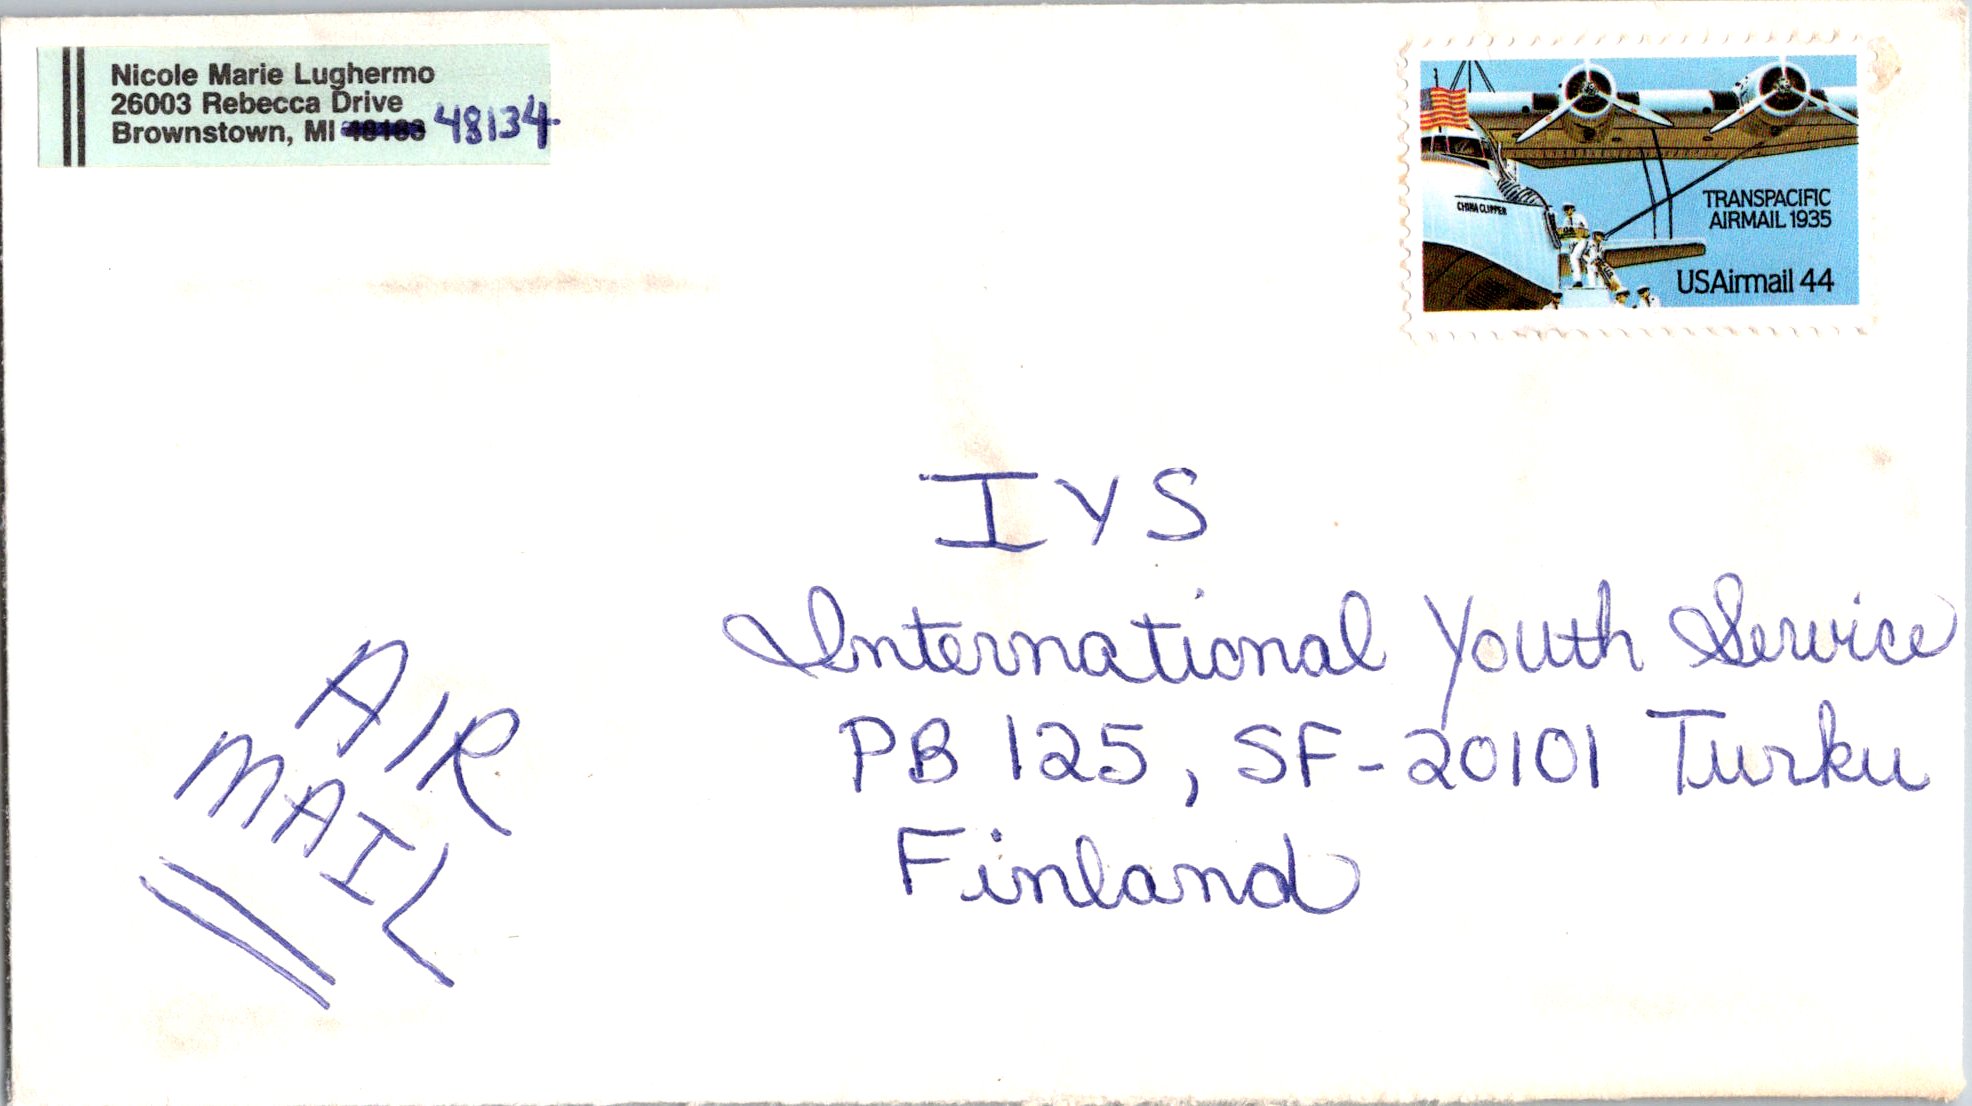 Nicole Marie Lughermo
26003 Rebecca Drive
Brownstown, MI 48134
CHINA CLIPPER
TRANSPACIFIC
AIRMAIL 1935
USAirmail 44
IYS
International Youth Service
PB 125, SF-20101 Turku
Finland
AIR
MAIL